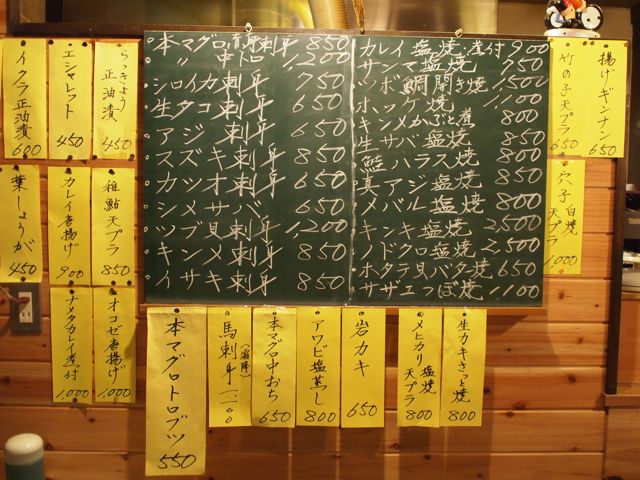 本マグロ背刺身 850
〃 中トロ 1,200
シロイカ刺身 750
生タコ刺身 650
アジ刺身 650
スズキ刺身 850
カツオ刺身 650
シメサバ 650
ツブ貝刺身 1,200
キンメ刺身 850
イサキ刺身 850
カレイ塩焼・煮付 900
サンマ塩焼 750
ツボ鯛開き焼 1,500
ホッケ焼 1,100
キンメかぶと煮 850
生サバ塩焼 800
鮭ハラス焼 800
真アジ塩焼 850
メバル塩焼 800
キンキ塩焼 2,500
ノドクロ塩焼 2,500
ホタテ貝バタ焼 650
サザエつぼ焼 1,100
らっきょう正油漬 450
エシャレット 450
イクラ正油漬 600
稚鮎天プラ 850
カレイ唐揚げ 900
葉しょうが 450
オコゼ唐揚げ 1,000
ナメタカレイ煮付 1,000
揚げギンナン 650
竹の子天プラ 650
穴子 白焼 天プラ 1,000
本マグロトロブツ 550
馬刺身(霜降) 1,100
本マグロ中おち 650
アワビ塩蒸し 800
岩カキ 650
メヒカリ 塩焼 天プラ 800
生カキさっと焼 800